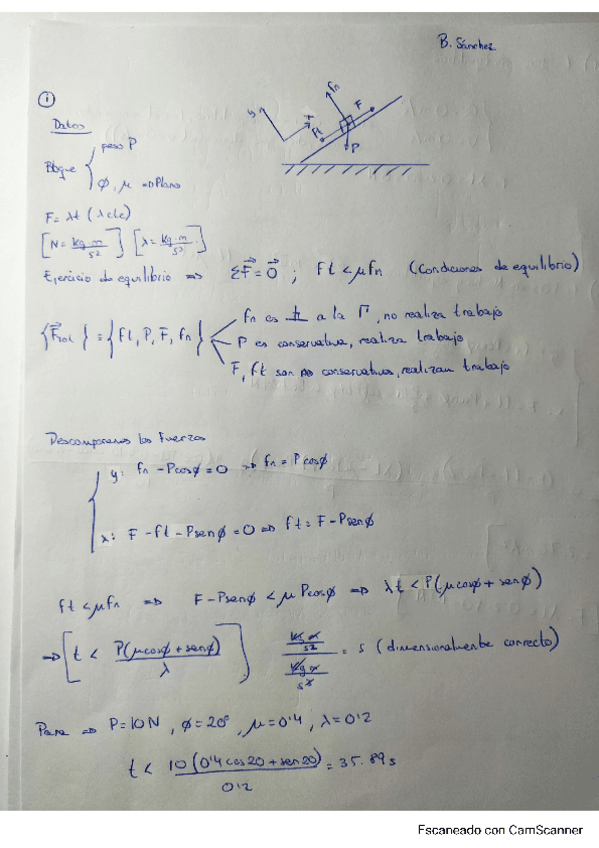 B. Sánchez
①
Datos
Bloque { peso P
ϕ, μ ⇒ Plano
y
x
ft
fn
F
P
F = λt (λ cte)
[N = kg·m/s²] [λ = kg·m/s³]
Ejercicio de equilibrio ⇒ ΣF⃗ = 0⃗ ; ft < μfn (Condiciones de equilibrio)
{F⃗tot} = {ft, P, F, fn}
fn es ⊥ a la Γ, no realiza trabajo
P es conservativa, realiza trabajo
F, ft son no conservativas, realizan trabajo
Descomponemos las Fuerzas
y: fn - Pcosϕ = 0 ⇒ fn = Pcosϕ
x: F - ft - Psenϕ = 0 ⇒ ft = F - Psenϕ
ft < μfn ⇒ F - Psenϕ < μPcosϕ ⇒ λt < P(μcosϕ + senϕ)
⇒ [t < P(μcosϕ + senϕ)/λ] (kg m/s²)/(kg m/s³) = s (dimensionalmente correcto)
Para ⇒ P = 10N, ϕ = 20°, μ = 0'4, λ = 0'2
t < 10(0'4cos20 + sen20)/0'2 = 35.89s
Escaneado con CamScanner